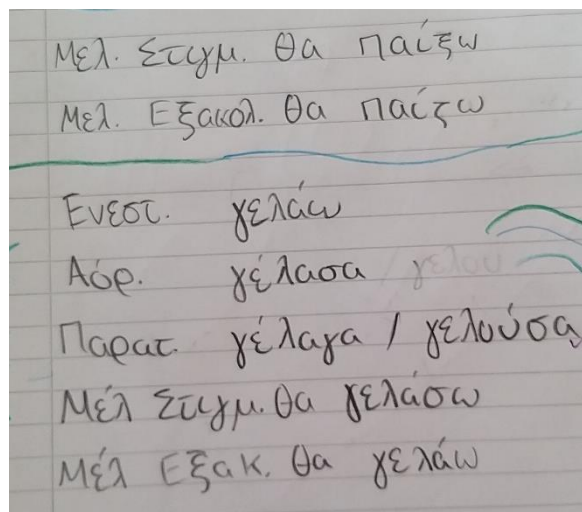 Μελ. Στιγμ. θα παίξω
Μελ. Εξακολ. θα παίζω
Ενεστ. γελάω
Αόρ. γέλασα / γελου
Παρατ. γέλαγα / γελούσα
Μέλ Στιγμ. θα γελάσω
Μέλ Εξακ. θα γελάω